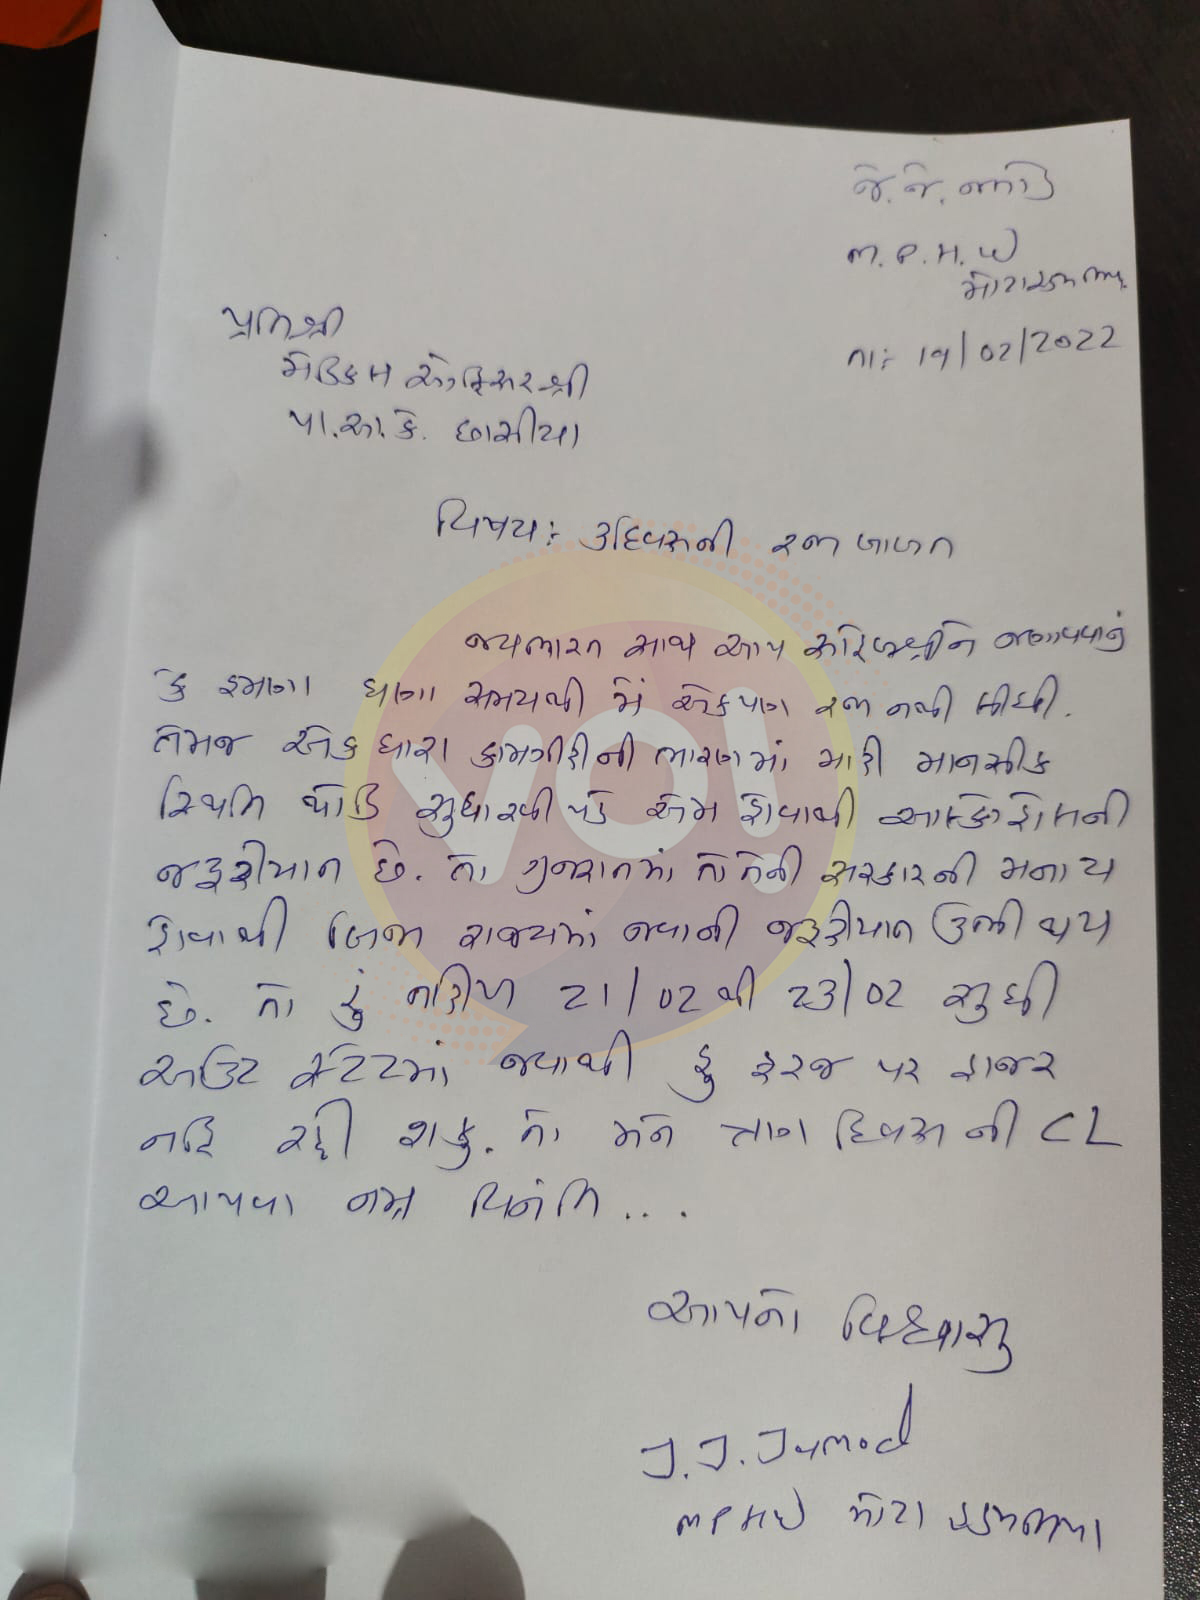 જે. જે.
M.P.H.W
તાઃ 19/02/2022
પ્રતિશ્રી
મેડિકલ ઓફિસરશ્રી
પા.આ.કે. છાસીયા
વિષયઃ ૩દિવસની રજા બાબત
જયભારત સાથ આપ સાહેબશ્રીને જણાવવાનું
કે હમણા ઘણા સમયથી મેં એકપણ રજા નથી લીધી.
તેમજ એકધારા કામગીરીની ભારણમાં મારી માનસીક
સ્થિતિ થોડિ સુધારવી પડે એમ હોવાથી આલ્કોહોલની
જરૂરીયાત છે. તો ગુજરાતમાં તો તેની સરકારની મનાય
હોવાથી બિજા રાજ્યમાં જવાની જરૂરીયાત ઉભી થાય
છે. તો હું તારીખ 21/02 થી 23/02 સુધી
આઉટ સ્ટેટમાં જવાથી હું ફરજ પર હાજર
નહિ રહી શકુ. તો મને ત્રણ દિવસ ની CL
આપવા નમ્ર વિનંતિ....
આપનો વિશ્વાસુ
J.J.Jumod
MPHW મોટા
VO!